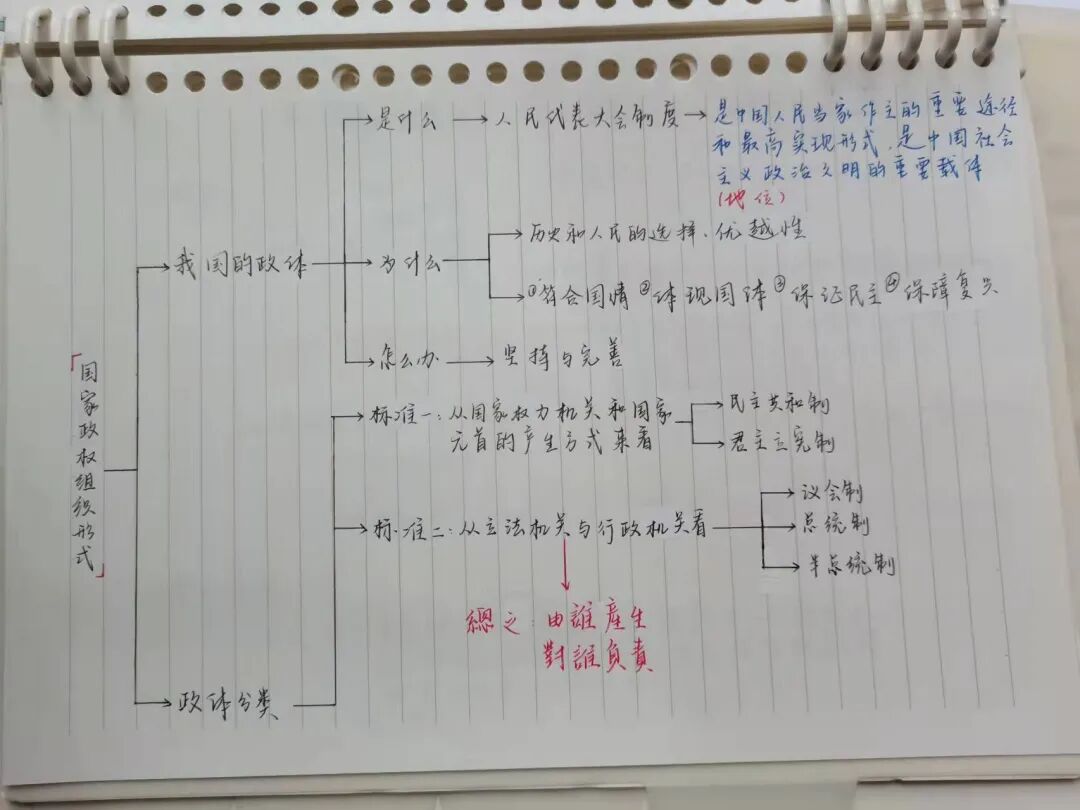 是什么
人民代表大会制度
是中国人民当家作主的重要途径
和最高实现形式,是中国社会
主义政治文明的重要载体
(地位)
我国的政体
为什么
历史和人民的选择、优越性
①符合国情②体现国体③保证民主④保障复兴
怎么办
坚持与完善
「国家政权组织形式」
标准一:从国家权力机关和国家
元首的产生方式来看
民主共和制
君主立宪制
标准二:从立法机关与行政机关看
议会制
总统制
半总统制
總之:由誰產生
對誰負責
政体分类